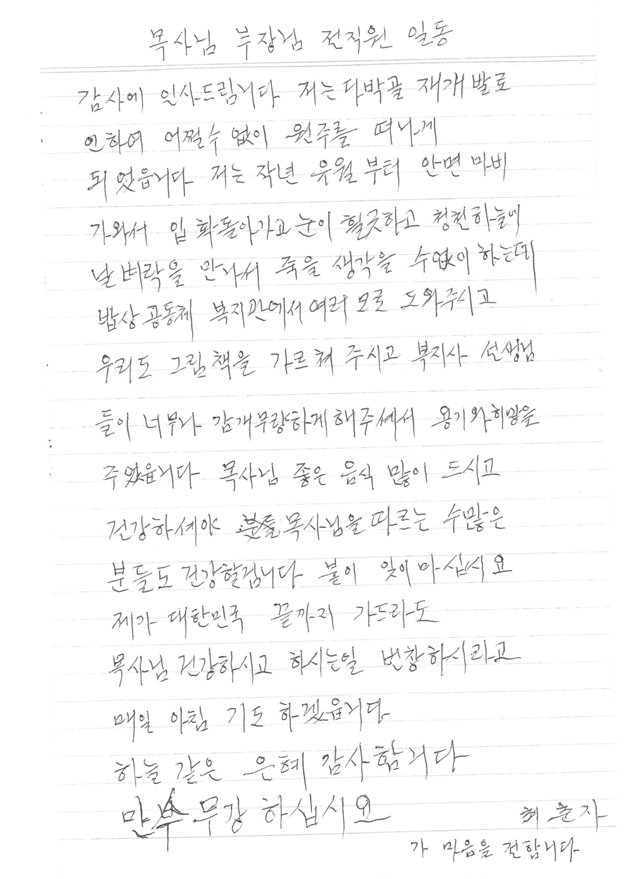 목사님 부장님 전직원 일동
감사에 인사드림니다 저는 다박골 재개발로
인하여 어쩔수 없이 원주를 떠나게
되었읍니다 저는 작년 유월부터 안면마비
가와서 입 확돌아가고 눈이 휠긋하고 청천하늘에
날벼락을 만나서 죽을 생각을 수없이 하는데
밥상공동체 복지관에서 여러모로 도와주시고
우리도 그림책을 가르쳐 주시고 복지사 선생님
들이 너무나 감개무량하게해주셔서 용기와희망을
주었읍니다 목사님 좋은 음식 많이 드시고
건강하셔야 목사님을 따르는 수많은
분들도 건강할겁니다 불이 잊이마십시요
제가 대한민국 끝까지 가드라도
목사님 건강하시고 하시는일 번창하시라고
매일 아침 기도 하겠읍니다
하늘 같은 은혜 감사합니다
만수무강 하십시요
최춘자
가 마음을 전합니다